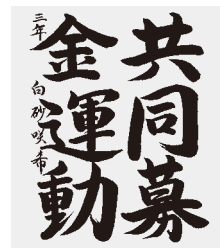 共同募
金運動
三年 白砂咲希